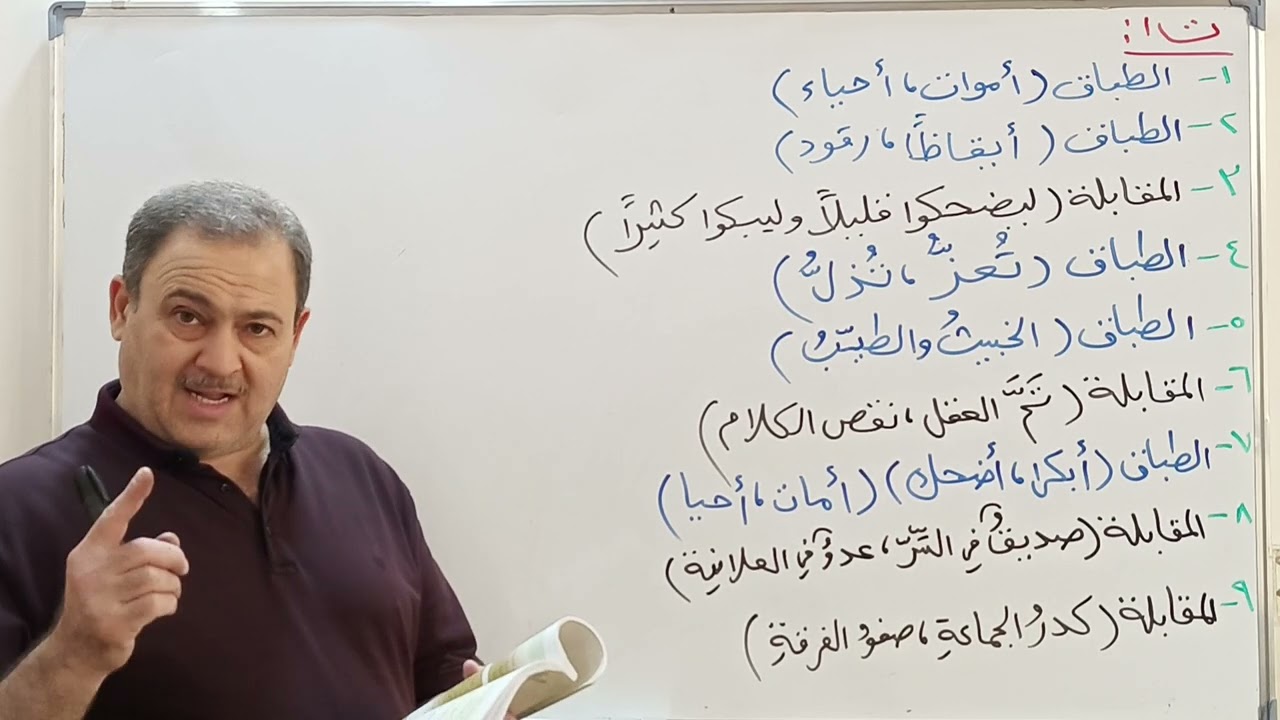 ت١:
١- الطباق (أموات، أحياء)
٢- الطباق (أيقاظاً، رقود)
٣- المقابلة (ليضحكوا قليلاً وليبكوا كثيراً)
٤- الطباق (تُعزُّ، تُذلُّ)
٥- الطباق (الخبيثُ والطيّبُ)
٦- المقابلة (تَمَّ العقل، نقص الكلام)
٧- الطباق (أبكى، أضحك) (أمات، أحيا)
٨- المقابلة (صديقٌ في السّرِّ، عدوٌّ في العلانية)
٩- المقابلة (كدرُ الجماعةِ، صفوُ الفرقةِ)